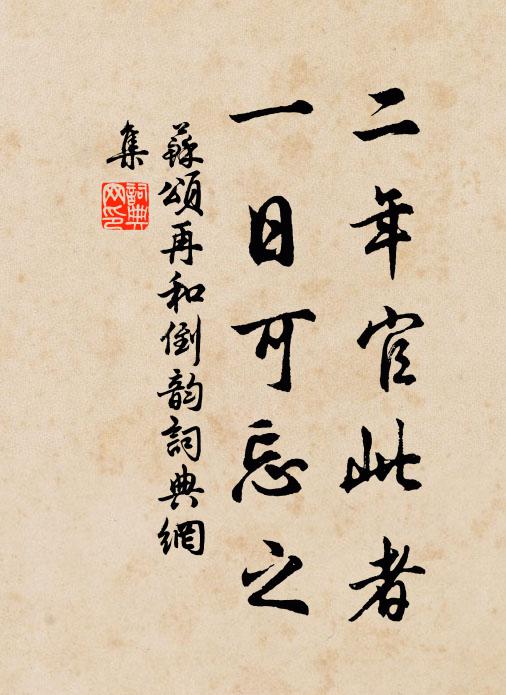 二年官此者
一日可忘之
蘇頌再和倒韵詞典網
集
詞典
网印